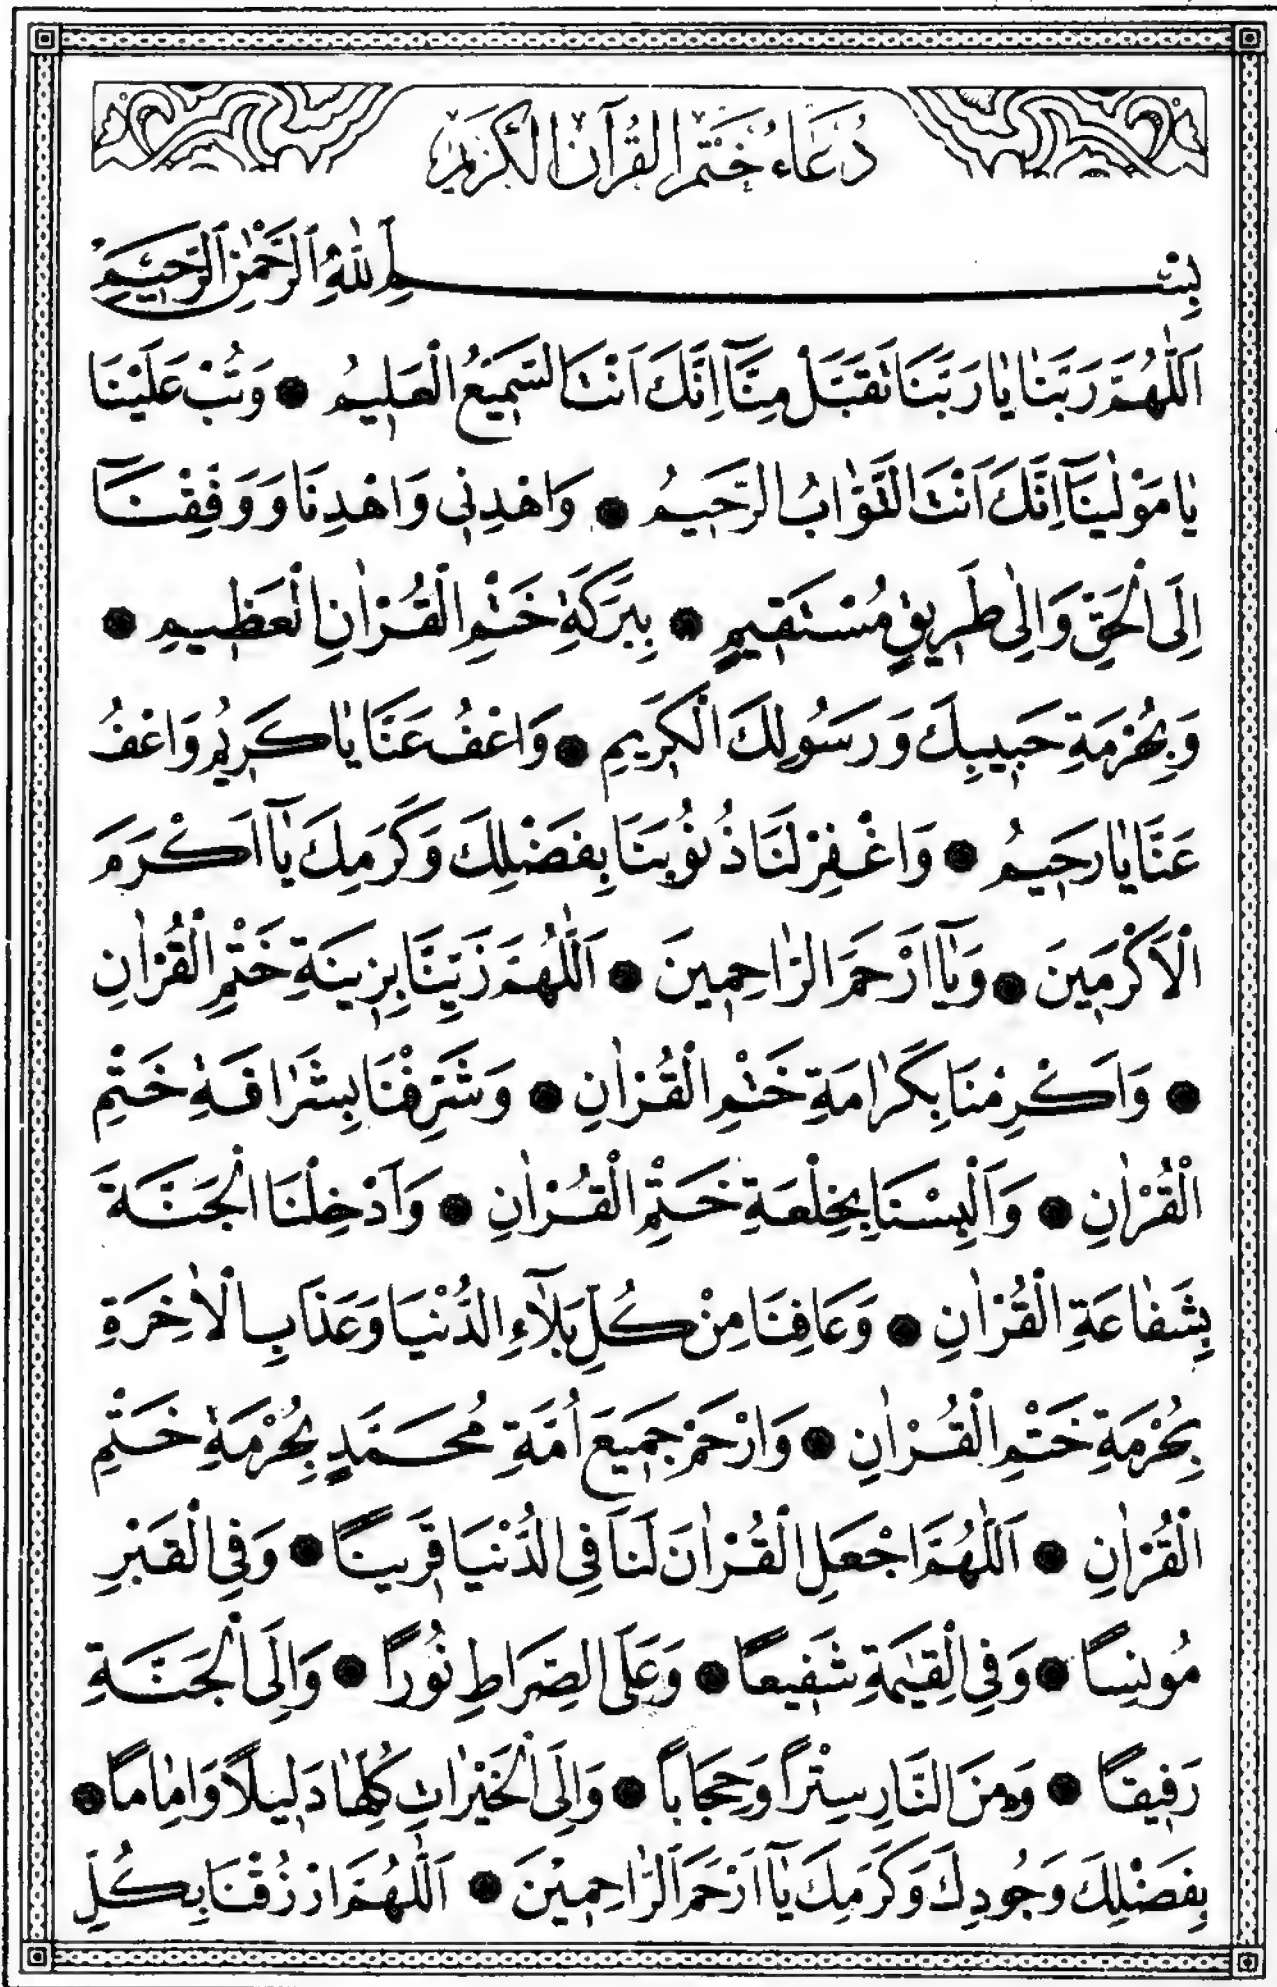 دُعَاءُ خَتْمِ الْقُرْآنِ الْكَرِيمِ
بِسْمِ اللّٰهِ الرَّحْمٰنِ الرَّحِيمِ
اَللّٰهُمَّ رَبَّنَا يَا رَبَّنَا تَقَبَّلْ مِنَّآ اِنَّكَ اَنْتَ السَّمِيعُ الْعَلِيمُ ۞ وَتُبْ عَلَيْنَا
يَا مَوْلٰينَآ اِنَّكَ اَنْتَ التَّوَّابُ الرَّحِيمُ ۞ وَاهْدِنِى وَاهْدِنَا وَوَفِّقْنَآ
اِلَى الْحَقِّ وَاِلٰى طَرِيقٍ مُسْتَقِيمٍ ۞ بِبَرَكَةِ خَتْمِ الْقُرْاٰنِ الْعَظِيمِ ۞
وَبِحُرْمَةِ حَبِيبِكَ وَرَسُولِكَ الْكَرِيمِ ۞ وَاعْفُ عَنَّا يَا كَرِيمُ وَاعْفُ
عَنَّا يَا رَحِيمُ ۞ وَاغْفِرْ لَنَا ذُنُوبَنَا بِفَضْلِكَ وَكَرَمِكَ يَآ اَكْرَمَ
الْاَكْرَمِينَ ۞ وَيَآ اَرْحَمَ الرَّاحِمِينَ ۞ اَللّٰهُمَّ زَيِّنَّا بِزِينَةِ خَتْمِ الْقُرْاٰنِ
۞ وَاَكْرِمْنَا بِكَرَامَةِ خَتْمِ الْقُرْاٰنِ ۞ وَشَرِّفْنَا بِشَرَافَةِ خَتْمِ
الْقُرْاٰنِ ۞ وَاَلْبِسْنَا بِخِلْعَةِ خَتْمِ الْقُرْاٰنِ ۞ وَاَدْخِلْنَا الْجَنَّةَ
بِشَفَاعَةِ الْقُرْاٰنِ ۞ وَعَافِنَا مِنْ كُلِّ بَلَآءِ الدُّنْيَا وَعَذَابِ الْاٰخِرَةِ
بِحُرْمَةِ خَتْمِ الْقُرْاٰنِ ۞ وَارْحَمْ جَمِيعَ اُمَّةِ مُحَمَّدٍ بِحُرْمَةِ خَتْمِ
الْقُرْاٰنِ ۞ اَللّٰهُمَّ اجْعَلِ الْقُرْاٰنَ لَنَا فِى الدُّنْيَا قَرِينًا ۞ وَفِى الْقَبْرِ
مُونِسًا ۞ وَفِى الْقِيٰمَةِ شَفِيعًا ۞ وَعَلَى الصِّرَاطِ نُورًا ۞ وَاِلَى الْجَنَّةِ
رَفِيقًا ۞ وَمِنَ النَّارِ سِتْرًا وَحِجَابًا ۞ وَاِلَى الْخَيْرَاتِ كُلِّهَا دَلِيلًا وَاِمَامًا ۞
بِفَضْلِكَ وَجُودِكَ وَكَرَمِكَ يَآ اَرْحَمَ الرَّاحِمِينَ ۞ اَللّٰهُمَّ ارْزُقْنَا بِكُلِّ